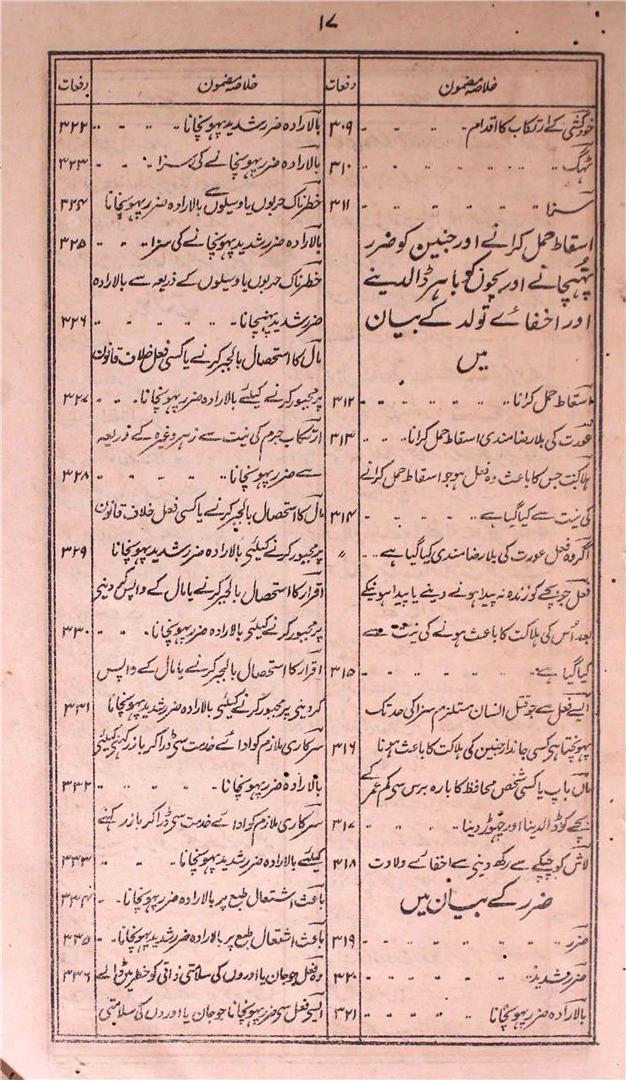 ۱۷
خلاصہ مضمون دفعات
خودکشی کے ارتکاب کا اقدام ۳۰۹
ٹھگ ۳۱۰
سزا ۳۱۱
اسقاط حمل کرانے اور جنین کو ضرر
پہنچانے اور بچون کو باہر ڈالدینے
اور اخفاے تولد کے بیان
میں
اسقاط حمل کرانا ۳۱۲
عورت کی بلا رضامندی اسقاط حمل کرانا ۳۱۳
ہلاکت جس کا باعث وہ فعل ہو جو اسقاط حمل کرانے
کی نیت سے کیا گیا ہے ۳۱۴
اگر وہ فعل عورت کی بلا رضامندی کیا گیا ہے ״
فعل جو بچے کو زندہ نہ پیدا ہونے دینے یا پیدا ہونیکے
بعد اُس کی ہلاکت کا باعث ہونے کی نیت سے
کیا گیا ہے ۳۱۵
ایسے فعل سے جو قتل انسان مستلزم سزا کی حد تک
پہونچتا ہی کسی جاندار جنین کی ہلاکت کا باعث ہونا ۳۱۶
ماں باپ یا کسی شخص محافظ کا بارہ برس سی کم عمر کے
بچے کو ڈالدینا اور چہوڑ دینا ۳۱۷
لاش کو چپکے سے رکھ دینی سے اخفاے ولادت ۳۱۸
ضرر کے بیان میں
ضرر ۳۱۹
ضرر شدید ۳۲۰
بالارادہ ضرر پہونچانا ۳۲۱
خلاصہ مضمون دفعات
بالارادہ ضرر شدید پہونچانا ۳۲۲
بالارادہ ضرر پہونچانے کی سزا ۳۲۳
خطرناک حربوں یا وسیلوں سے بالارادہ ضرر پہونچانا ۳۲۴
بالارادہ ضرر شدید پہونچانے کی سزا ۳۲۵
خطرناک حربوں یا وسیلوں کے ذریعہ سے بالارادہ
ضرر شدید پہنچانا ۳۲۶
مال کا استحصال بالجبر کرنے یا کسی فعل خلاف قانون
پر مجبور کرنے کیلئے بالارادہ ضرر پہونچانا ۳۲۷
ارتکاب جرم کی نیت سے زہر وغیرہ کے ذریعہ
سے ضرر پہونچانا ۳۲۸
مال کا استحصال بالجبر کرنے یا کسی فعل خلاف قانون
پر مجبور کرنے کیلئی بالارادہ ضرر شدید پہونچانا ۳۲۹
اقرار کا استحصال بالجبر کرنے یا مال کے واپس کر دینی
پر مجبور کرنے کیلئی بالارادہ ضرر پہونچانا ۳۳۰
اقرار کا استحصال بالجبر کرنے یا مال کے واپس
کر دینی پر مجبور کرنے کیلئی بالارادہ ضرر شدید پہونچانا ۳۳۱
سرکاری ملازم کو اداے خدمت سی ڈرا کر باز رکہنی کیلئی
بالارادہ ضرر پہونچانا ۳۳۲
سرکاری ملازم کو اداے خدمت سی ڈرا کر باز رکہنے
کیلئے بالارادہ ضرر شدید پہونچانا ۳۳۳
باعث اشتعال طبع پر بالارادہ ضرر پہونچانا ۳۳۴
باعث اشتعال طبع پر بالارادہ ضرر شدید پہونچانا ۳۳۵
وہ فعل جو جان یا اوروں کی سلامتی ذاتی کو خطر میں ڈالے ۳۳۶
ایسی فعل سی ضرر پہونچانا جو جان یا اوروں کی سلامتی